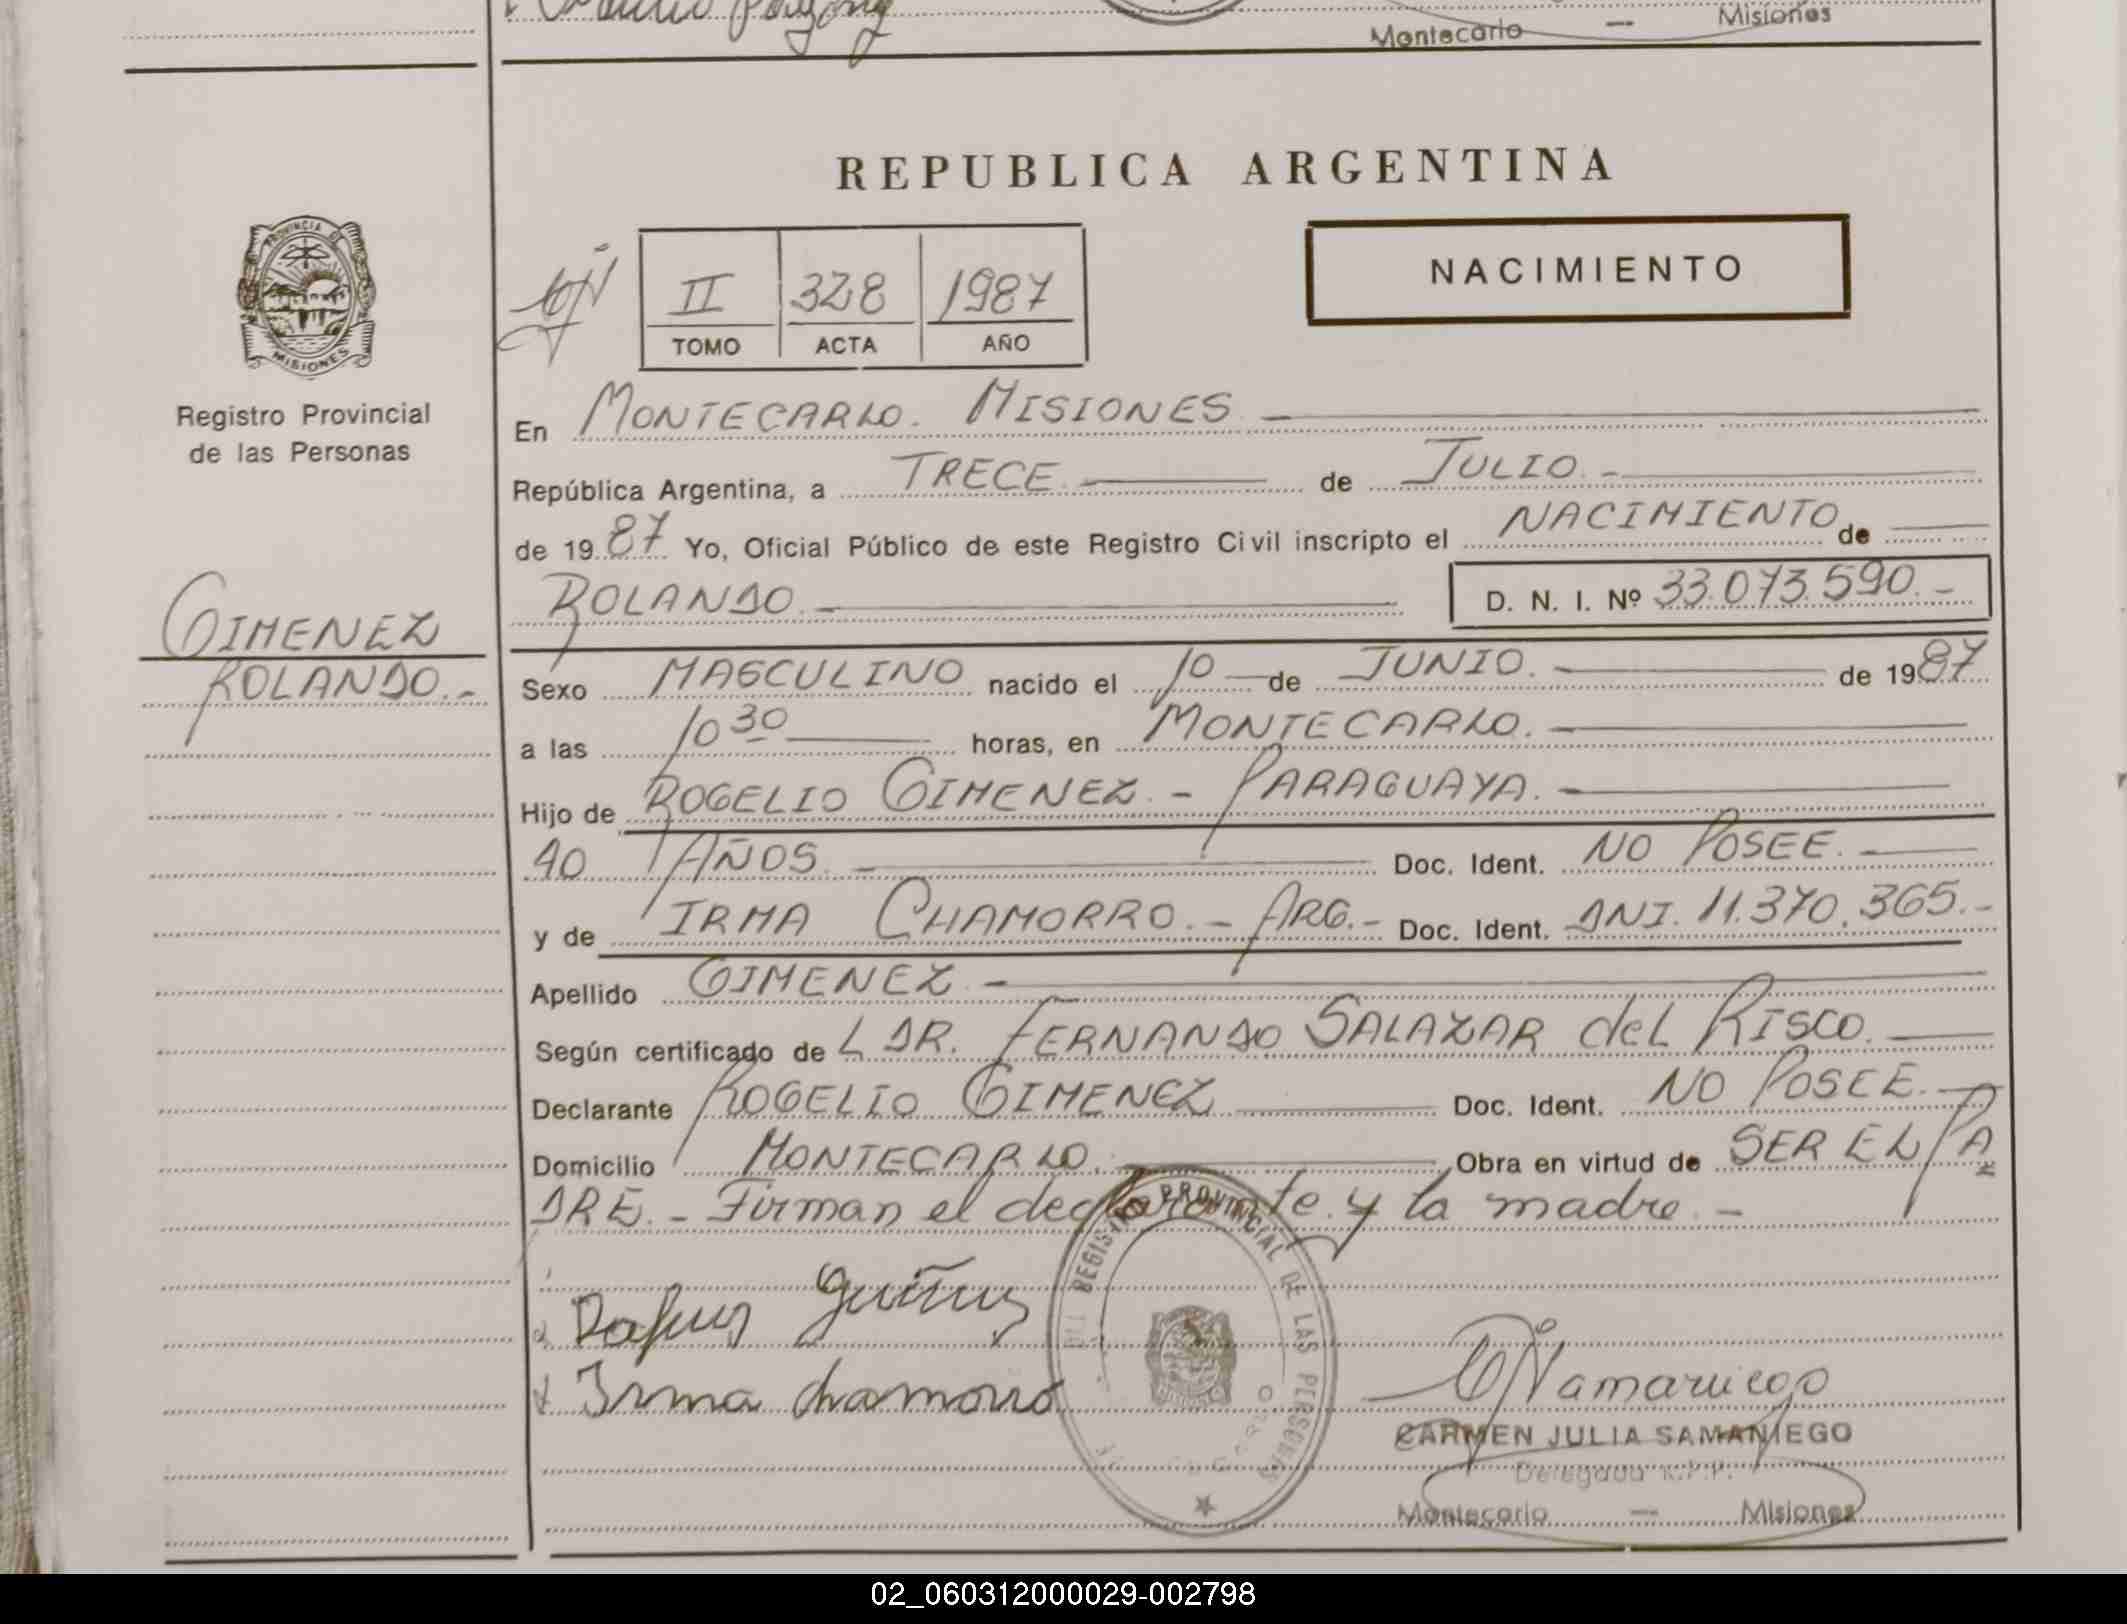 Montecarlo — Misiones
REPUBLICA ARGENTINA
PROVINCIA DE
MISIONES
Registro Provincial
de las Personas
II 328 1987
TOMO ACTA AÑO
NACIMIENTO
En MONTECARLO. MISIONES
República Argentina, a TRECE de JULIO.-
de 1987 Yo, Oficial Público de este Registro Civil inscripto el NACIMIENTO de
ROLANDO.- D. N. I. Nº 33.073.590.-
GIMENEZ
ROLANDO.-
Sexo MASCULINO nacido el 10 de JUNIO. de 1987
a las 10 30 horas, en MONTECARLO.
Hijo de ROGELIO GIMENEZ.- PARAGUAYA.
40 AÑOS. Doc. Ident. NO POSEE.
y de IRMA CHAMORRO.- ARG.- Doc. Ident. DNI. 11.370.365.-
Apellido GIMENEZ.-
Según certificado de L DR. FERNANDO SALAZAR del RISCO.
Declarante ROGELIO GIMENEZ Doc. Ident. NO POSEE.-
Domicilio MONTECARLO. Obra en virtud de SER EL PA
DRE.- Firman el declarante y la madre.-
REGISTRO PROVINCIAL DE LAS PERSONAS
Irma Chamorro
CARMEN JULIA SAMANIEGO
Delegada R.P.P.
Montecarlo — Misiones
02_060312000029-002798